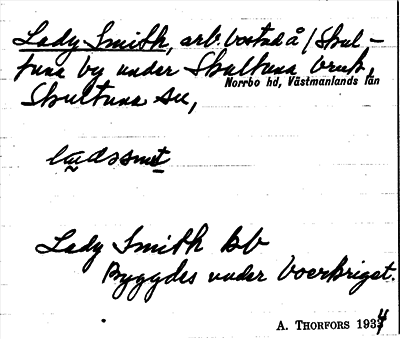 Lady Smith, arb. bostad å / Skul-
tuna by under Skultuna bruk,
Norrbo hd, Västmanlands län
Skultuna sn,
Lady Smith bb
Byggdes under boerkriget.
A. THORFORS 1934